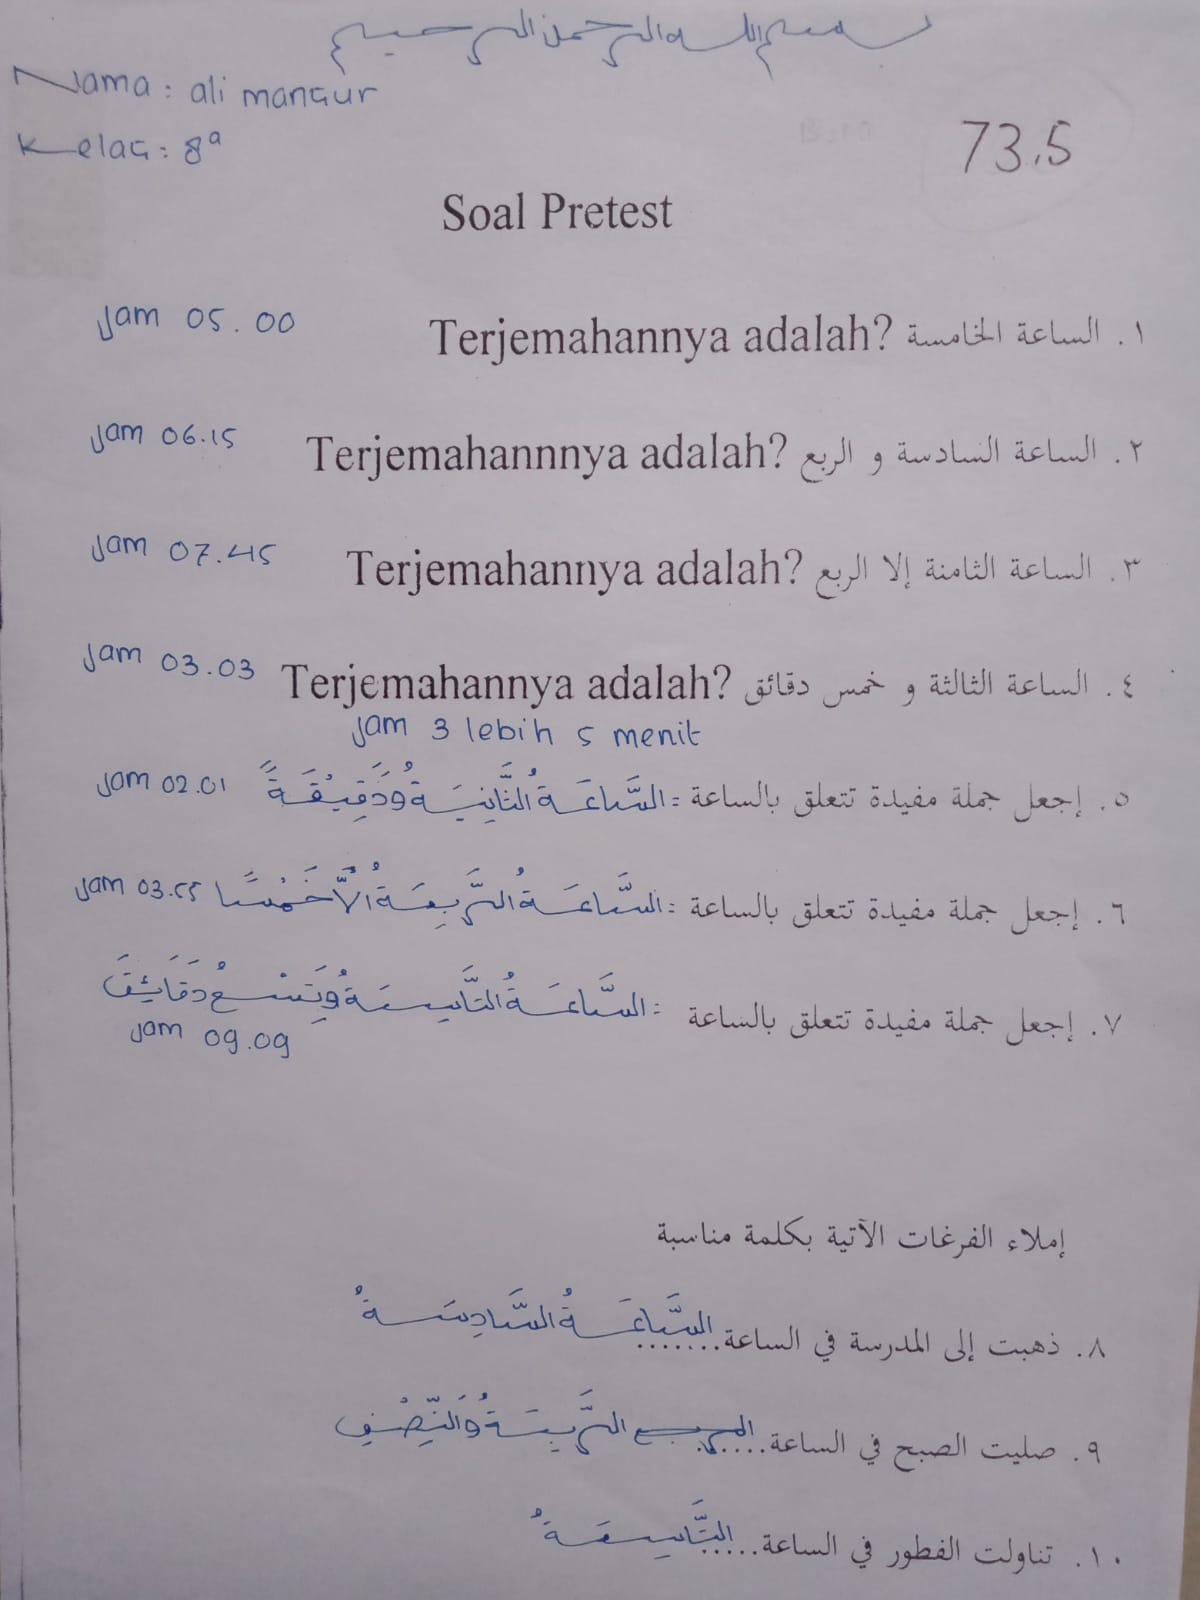 بسم الله الرحمن الرحيم
Nama : ali mansur
Kelas : 8a
73.5
Soal Pretest
١. الساعة الخامسة Terjemahannya adalah? Jam 05.00
٢. الساعة السادسة و الربع Terjemahannnya adalah? Jam 06.15
٣. الساعة الثامنة إلا الربع Terjemahannya adalah? Jam 07.45
٤. الساعة الثالثة و خمس دقائق Terjemahannya adalah? Jam 03.03
Jam 3 lebih 5 menit
٥. إجعل جملة مفيدة تتعلق بالساعة = السَّاعَةُ الثَّانِيَةُ وَدَقِيْقَةً Jam 02.01
٦. إجعل جملة مفيدة تتعلق بالساعة = السَّاعَةُ الرَّبِعَةُ الَّا خَمْسًا Jam 03.55
٧. إجعل جملة مفيدة تتعلق بالساعة = السَّاعَةُ التَّاسِعَةُ وَتِسْعُ دَقَائِقَ
Jam 09.09
إملاء الفرغات الآتية بكلمة مناسبة
٨. ذهبت إلى المدرسة في الساعة....... السَّاعَةُ السَّادِسَةُ
٩. صليت الصبح في الساعة...... الرَّبِعَةُ وَالنِّصْفِ
١٠. تناولت الفطور في الساعة...... التَّاسِعَةُ